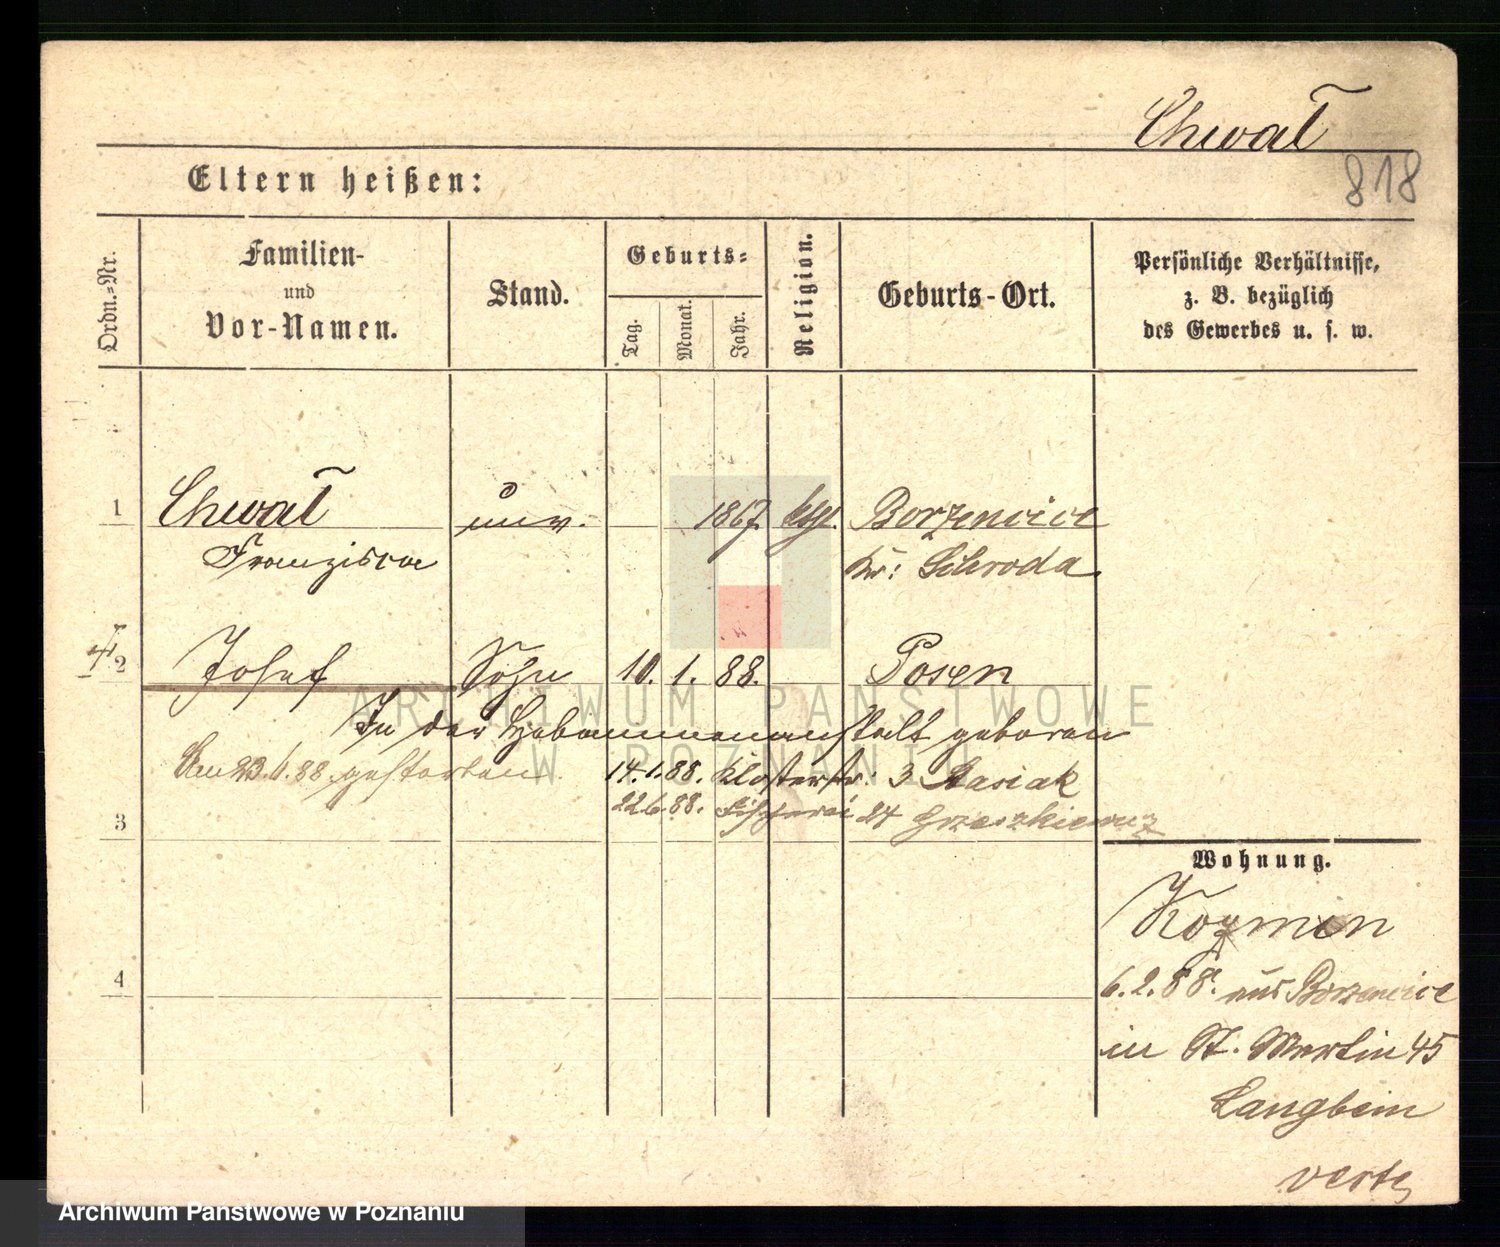 Chwał
818
Eltern heißen:
Ordn.-Nr.
Familien-
und
Vor-Namen.
Stand.
Geburts-
Tag.
Monat.
Jahr.
Religion.
Geburts-Ort.
Persönliche Verhältnisse,
z. B. bezüglich
des Gewerbes u. s. w.
1 Chwał unv. 1867 kth. Borzencice
Franzisca Kr: Schroda
2 Josef Sohn 10. 1. 88. Posen
In der Hebammenanstalt geboren
Am 23.6.88 gestorben. 14.1.88. Klosterstr: 3 Stasiak
22.6.88. Fischerei 24 Grzeszkiewicz
3
Wohnung.
Kozmin
4
6.2.88. aus Borzencice
in St. Martin 45
Langbein
verte
ARCHIWUM PAŃSTWOWE
W POZNANIU
Archiwum Państwowe w Poznaniu